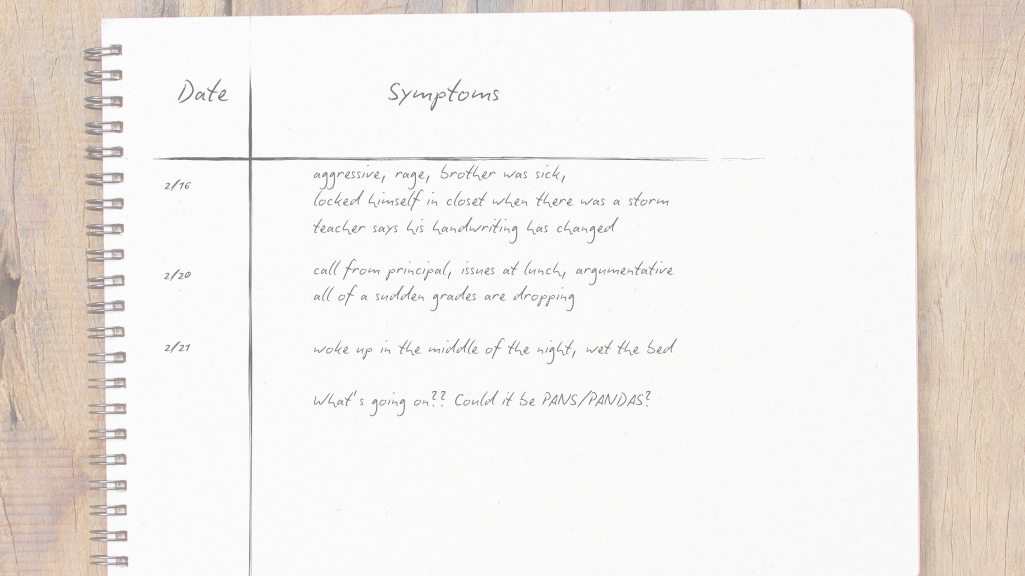 Date Symptoms
2/16 aggressive, rage, brother was sick,
locked himself in closet when there was a storm
teacher says his handwriting has changed
2/20 call from principal, issues at lunch, argumentative
all of a sudden grades are dropping
2/21 woke up in the middle of the night, wet the bed
What's going on?? Could it be PANS/PANDAS?